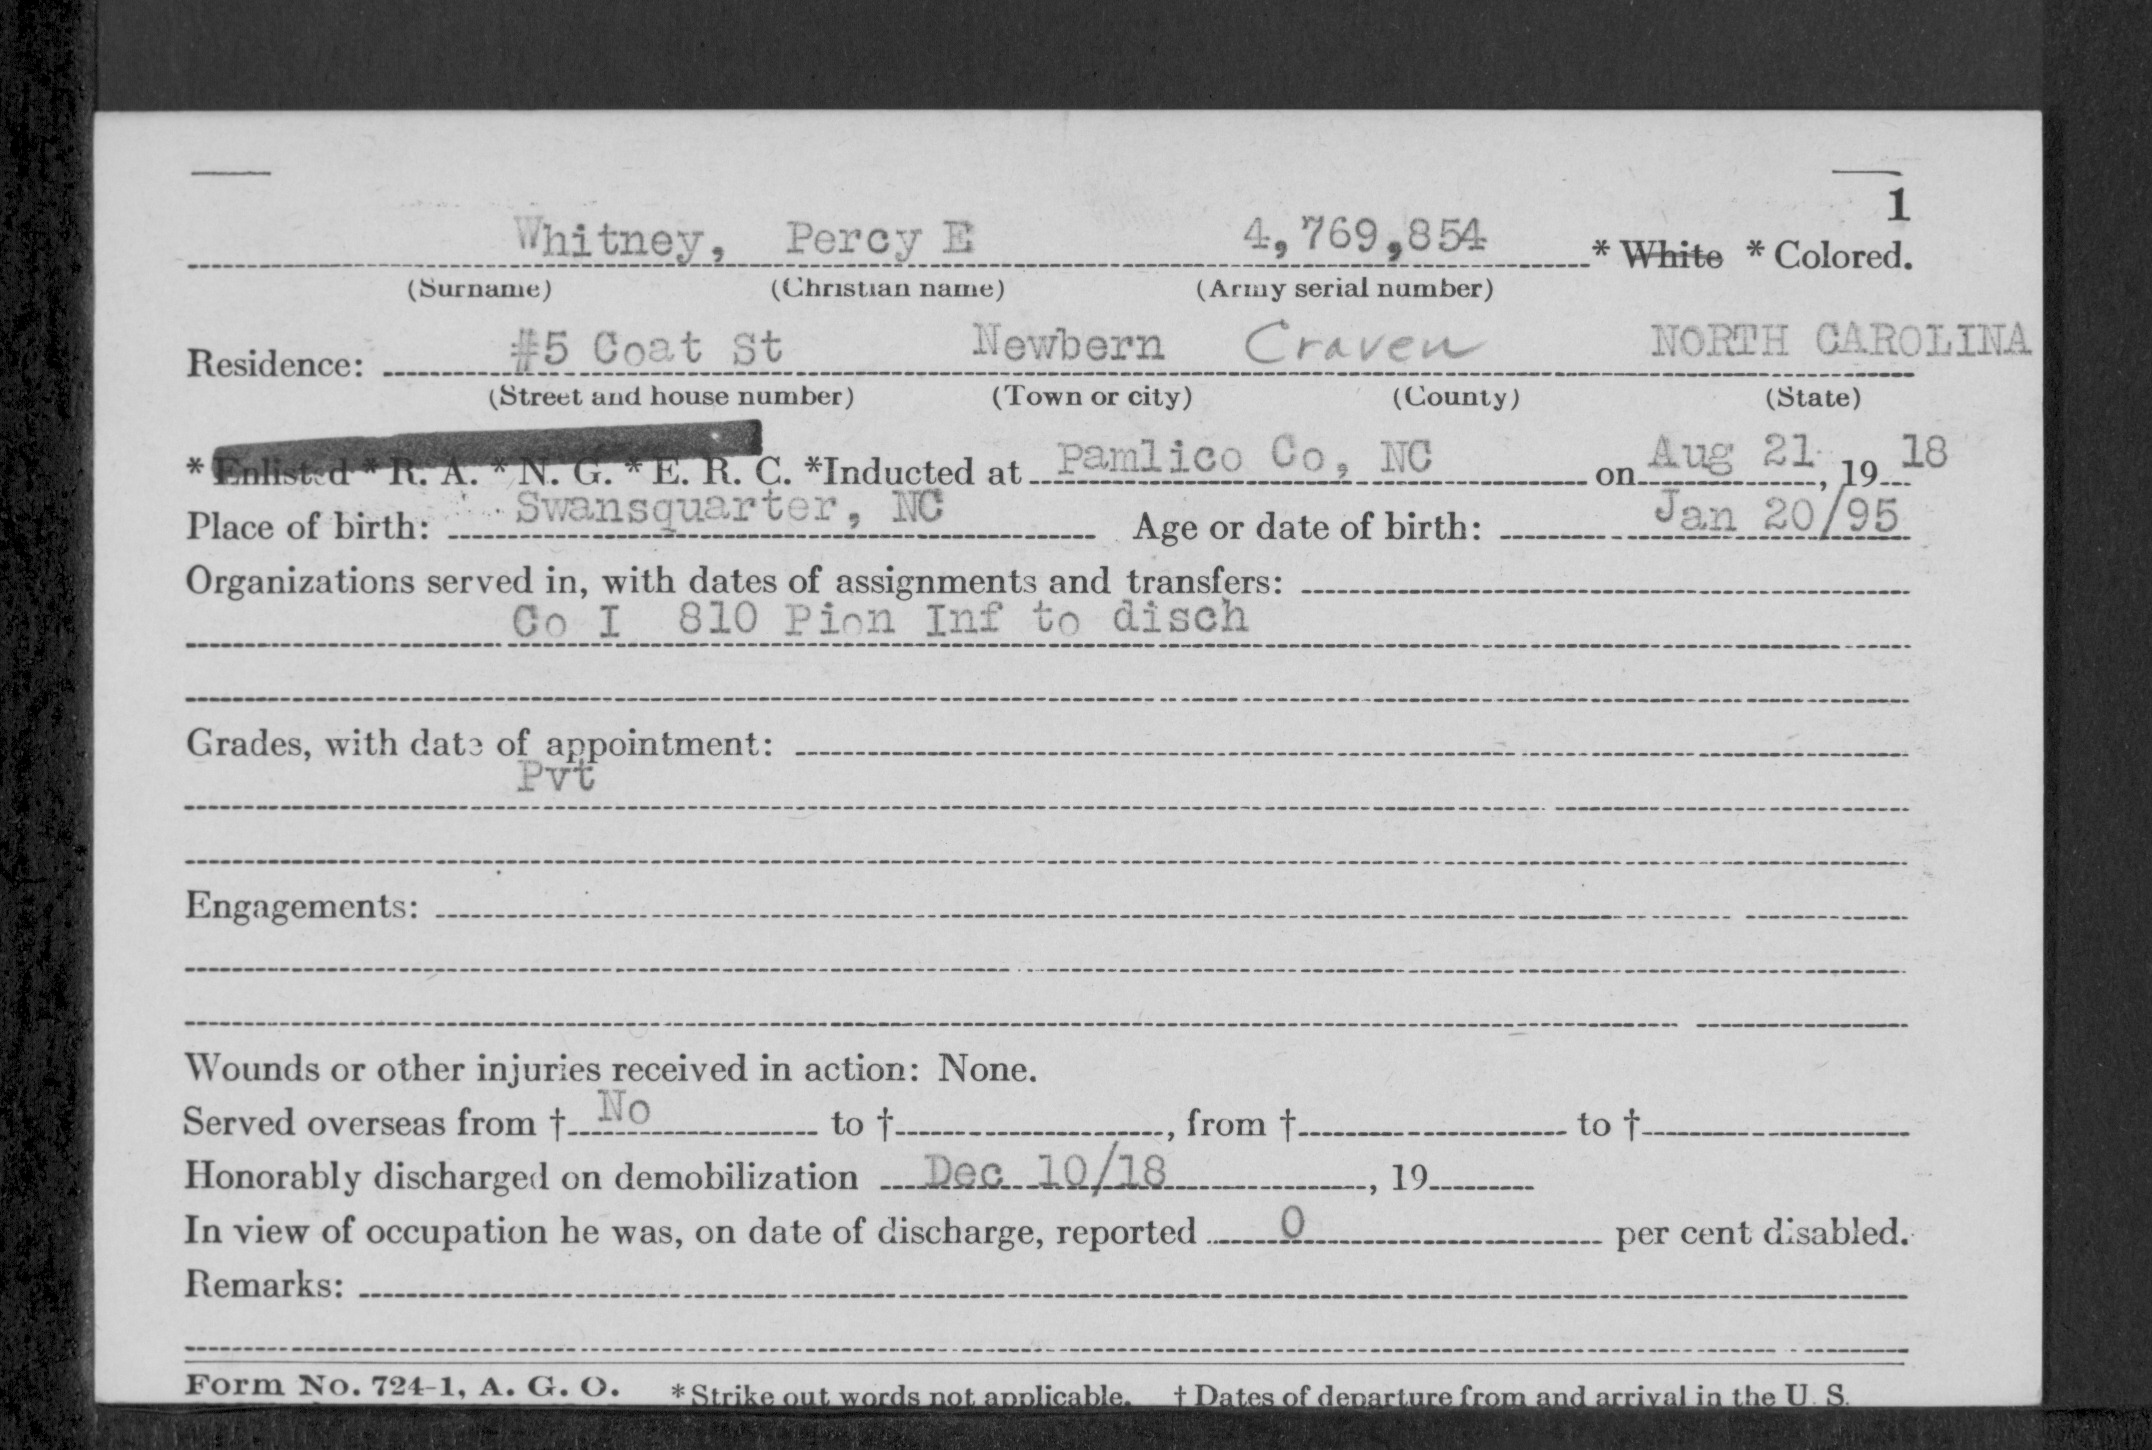 1
Whitney, Percy E 4,769,854 * White * Colored.
(Surname) (Christian name) (Army serial number)
Residence: #5 Coat St Newbern Craven NORTH CAROLINA
(Street and house number) (Town or city) (County) (State)
* Enlisted * R. A. * N. G. * E. R. C. *Inducted at Pamlico Co, NC on Aug 21, 19 18
Place of birth: Swansquarter, NC Age or date of birth: Jan 20/95
Organizations served in, with dates of assignments and transfers:
Co I 810 Pion Inf to disch
Grades, with date of appointment:
Pvt
Engagements:
Wounds or other injuries received in action: None.
Served overseas from † No to †, from † to †
Honorably discharged on demobilization Dec 10/18, 19
In view of occupation he was, on date of discharge, reported 0 per cent disabled.
Remarks:
Form No. 724-1, A. G. O. * Strike out words not applicable. † Dates of departure from and arrival in the U. S.